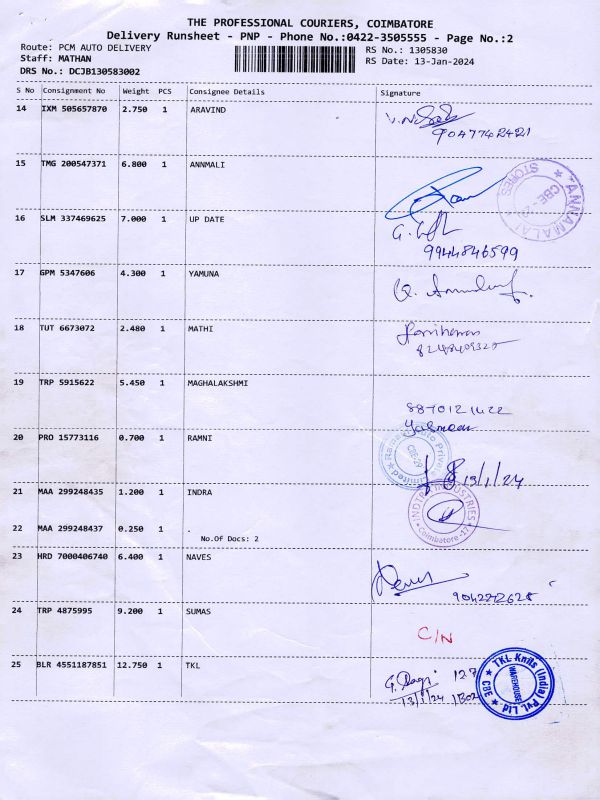 THE PROFESSIONAL COURIERS, COIMBATORE
Delivery Runsheet - PNP - Phone No.:0422-3505555 - Page No.:2
Route: PCM AUTO DELIVERY RS No.: 1305830
Staff: MATHAN RS Date: 13-Jan-2024
DRS No.: DCJB130583002
S No Consignment No Weight PCS Consignee Details Signature
14 IXM 505657870 2.750 1 ARAVIND
9047742421
15 TMG 200547371 6.800 1 ANNMALI
ANNAMALAI STORES CBE-2
16 SLM 337469625 7.000 1 UP DATE
9944846599
17 GPM 5347606 4.300 1 YAMUNA
18 TUT 6673072 2.480 1 MATHI
19 TRP 5915622 5.450 1 MAGHALAKSHMI
20 PRO 15773116 0.700 1 RAMNI
Auto Private Limited CBE-29
13/1/24
21 MAA 299248435 1.200 1 INDRA
INDTRA INDUSTRIES Coimbatore-17
22 MAA 299248437 0.250 1 .
No.Of Docs: 2
23 HRD 7000406740 6.400 1 NAVES
24 TRP 4875995 9.200 1 SUMAS
C/N
25 BLR 4551187851 12.750 1 TKL
13/1/24 1Box
TKL Knits (India) Pvt. Ltd CBE WAREHOUSE